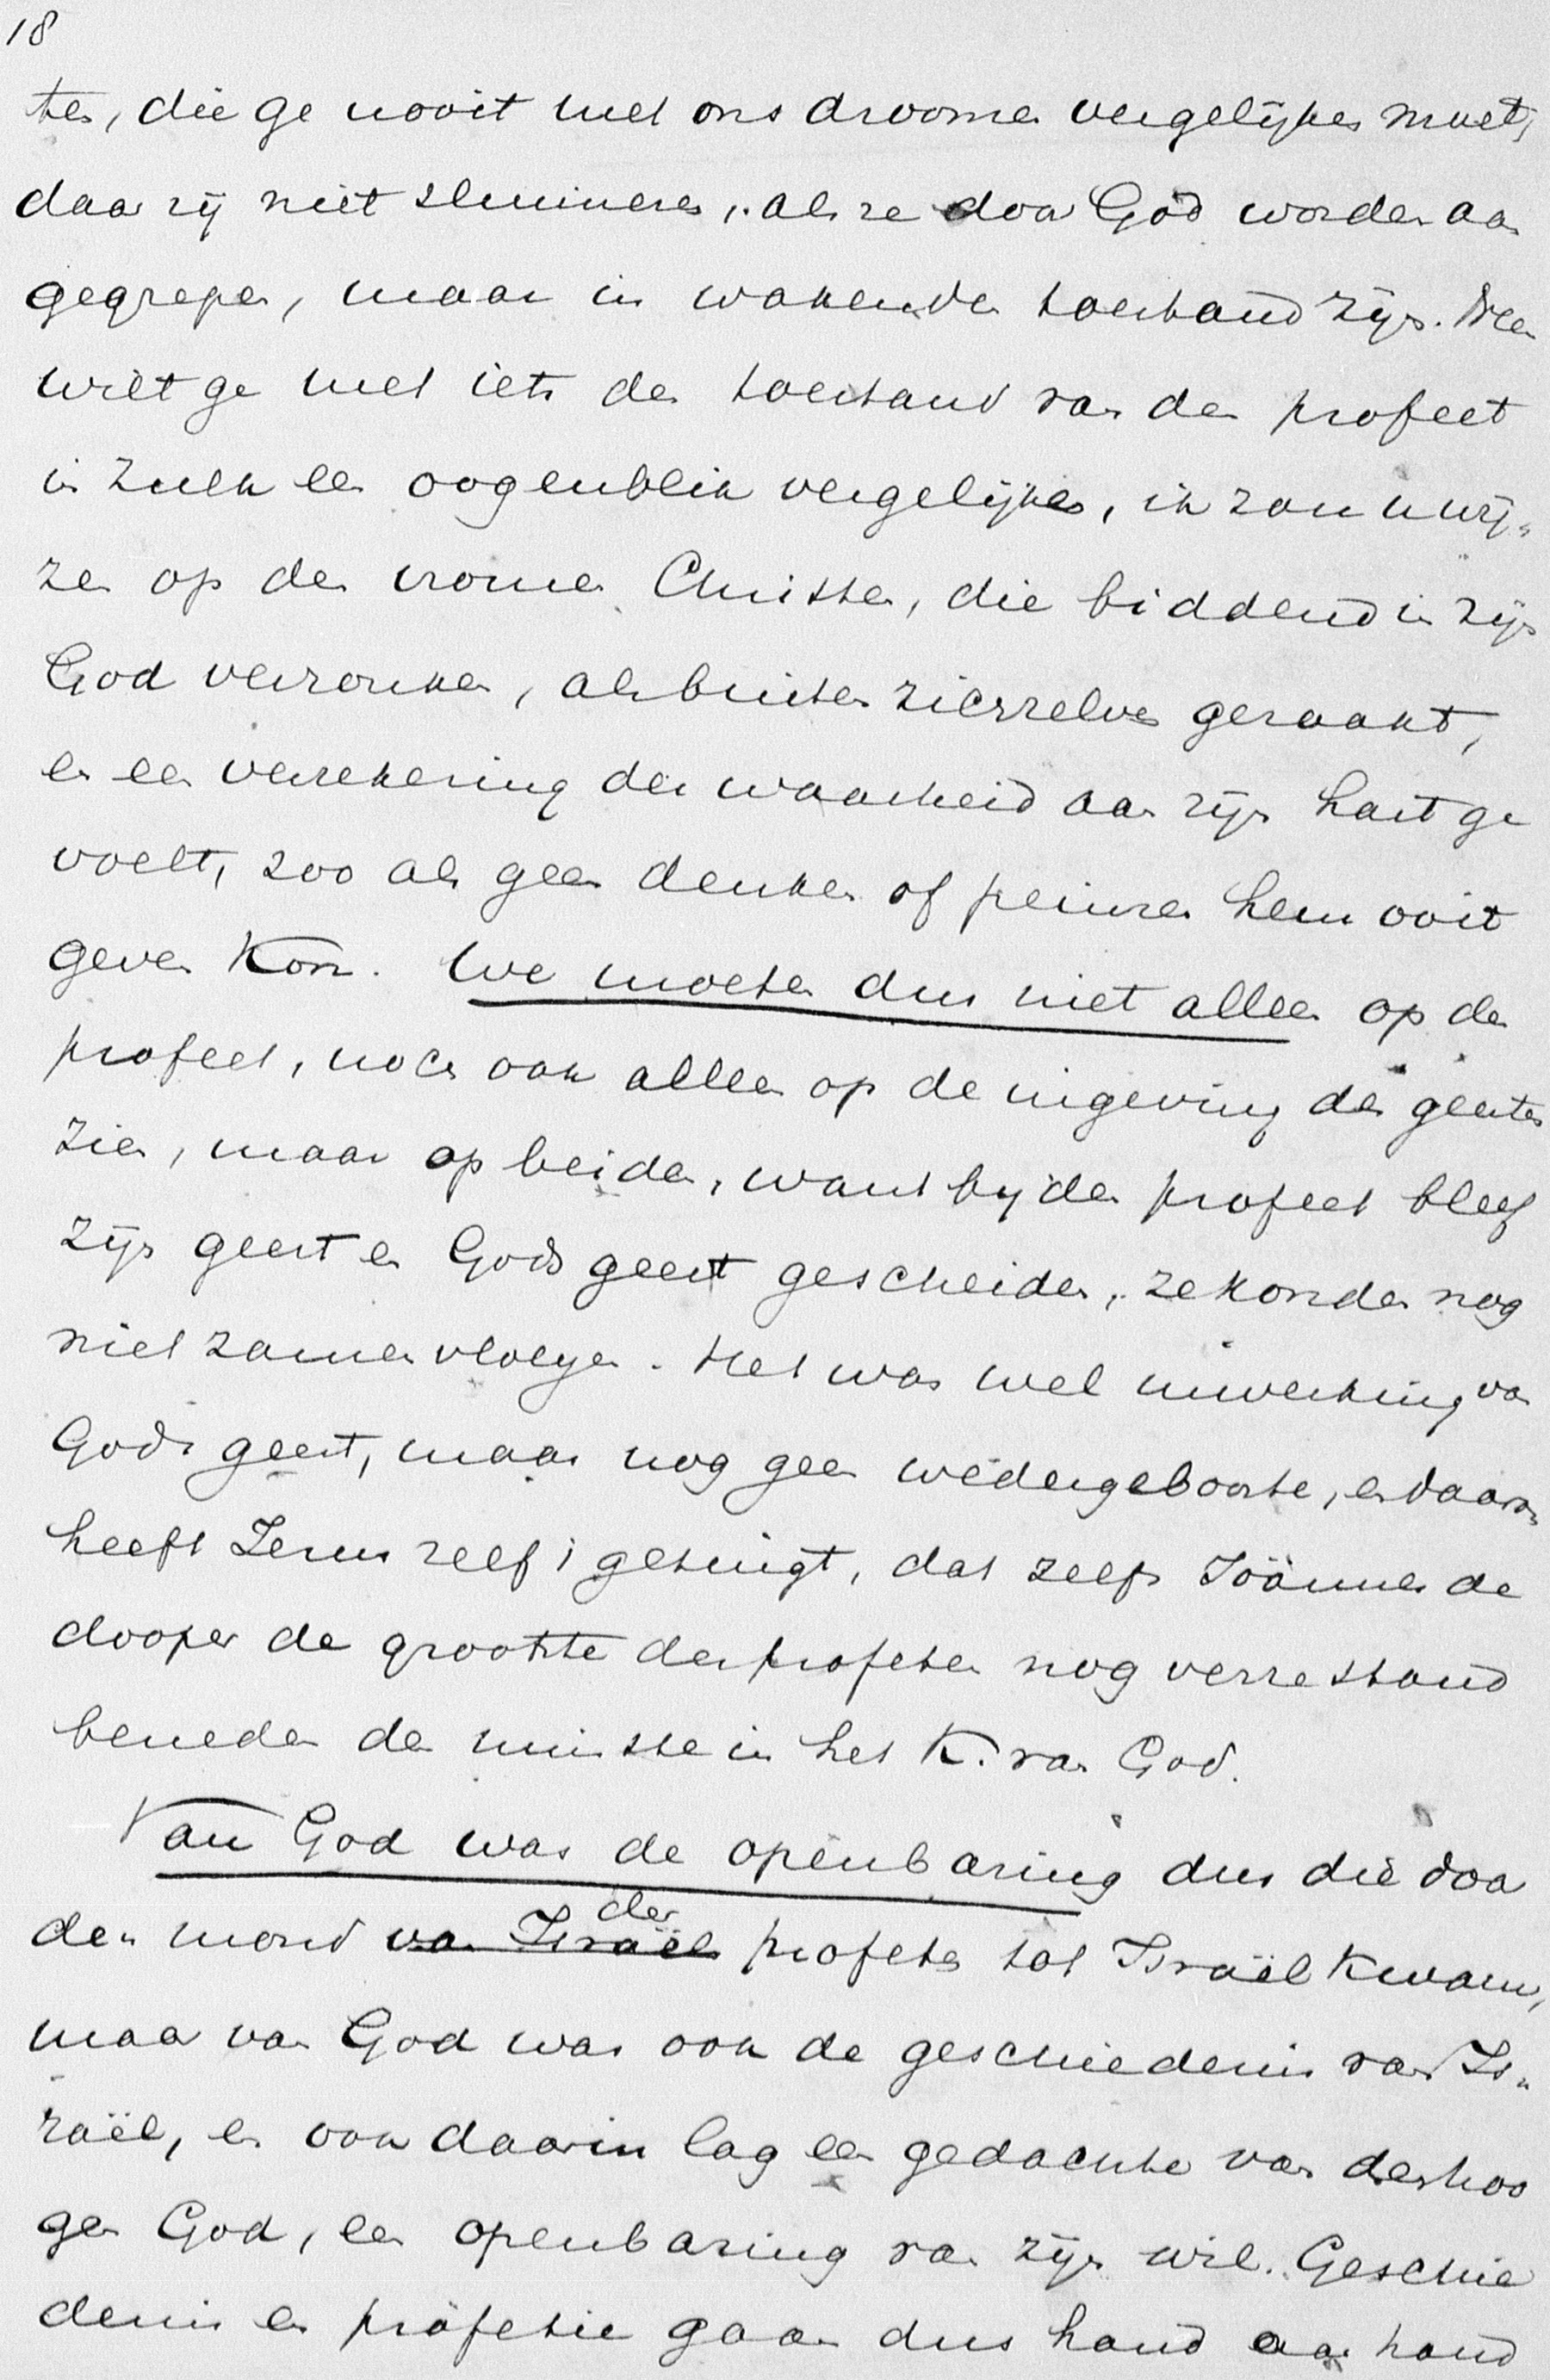 18
ten, die ge nooit met ons droomen vergelijken moet,
daar zij niet sluimeren, als ze door God worden aan
gegrepen, maar in wakenden toestand zijn. Neen
wilt ge met iets den toestand van den profeet
in zulk een oogenblik vergelijken, ik zou u wij„
zen op den vromen Christen, die biddend in zijn
God verzonken, als buiten zichzelven geraakt,
en een verzekering der waarheid aan zijn hart ge
voelt, zoo als geen denken of peinzen hem ooit
geven kon. We moeten dus niet alleen op den
profeet, noch ook alleen op de ingeving des geestes
zien, maar op beiden, want bij den profeet bleef
zijn geest en Gods geest gescheiden, ze konden nog
niet zamenvloeyen. Het was wel inwerking van
Gods geest, maar nog geen wedergeboorte, en daarom
heeft Jezus zelf getuigt, dat zelfs Joännes de
dooper de grootste der profeten nog verre stond
beneden de minste in het K. van God.
Van God was de openbaring dus die door
der
den mond van Israëls profeten tot Israël kwam,
maar van God was ook de geschiedenis van Is„
raël, en ook daarin lag een gedachte van den hoo
gen God, een openbaring van zijn wil. Geschie
denis en profetie gaan dus hand aan hand